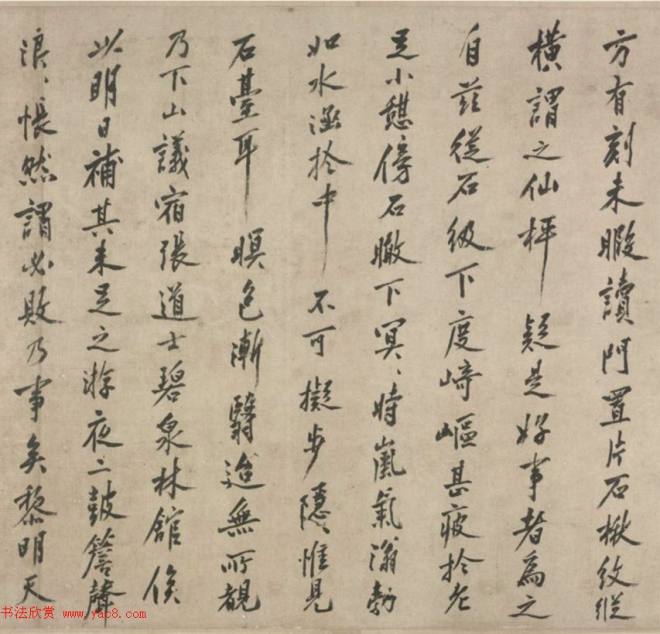 方有刻未暇讀門置片石楸紋縱
橫謂之仙枰疑是好事者為之
自茲從石級下度崎嶇甚疲於老
足小憩傍石瞰下冥〻時嵐氣滃勃
如水涵於中不可擬步隱〻惟見
石臺耳暝色漸翳迨無所覩
乃下山議宿張道士碧泉林館俟
以明日補其未足之游夜二鼓簷聲
浪〻悵然謂必敗乃事矣黎明天
书法欣赏 www.yac8.com